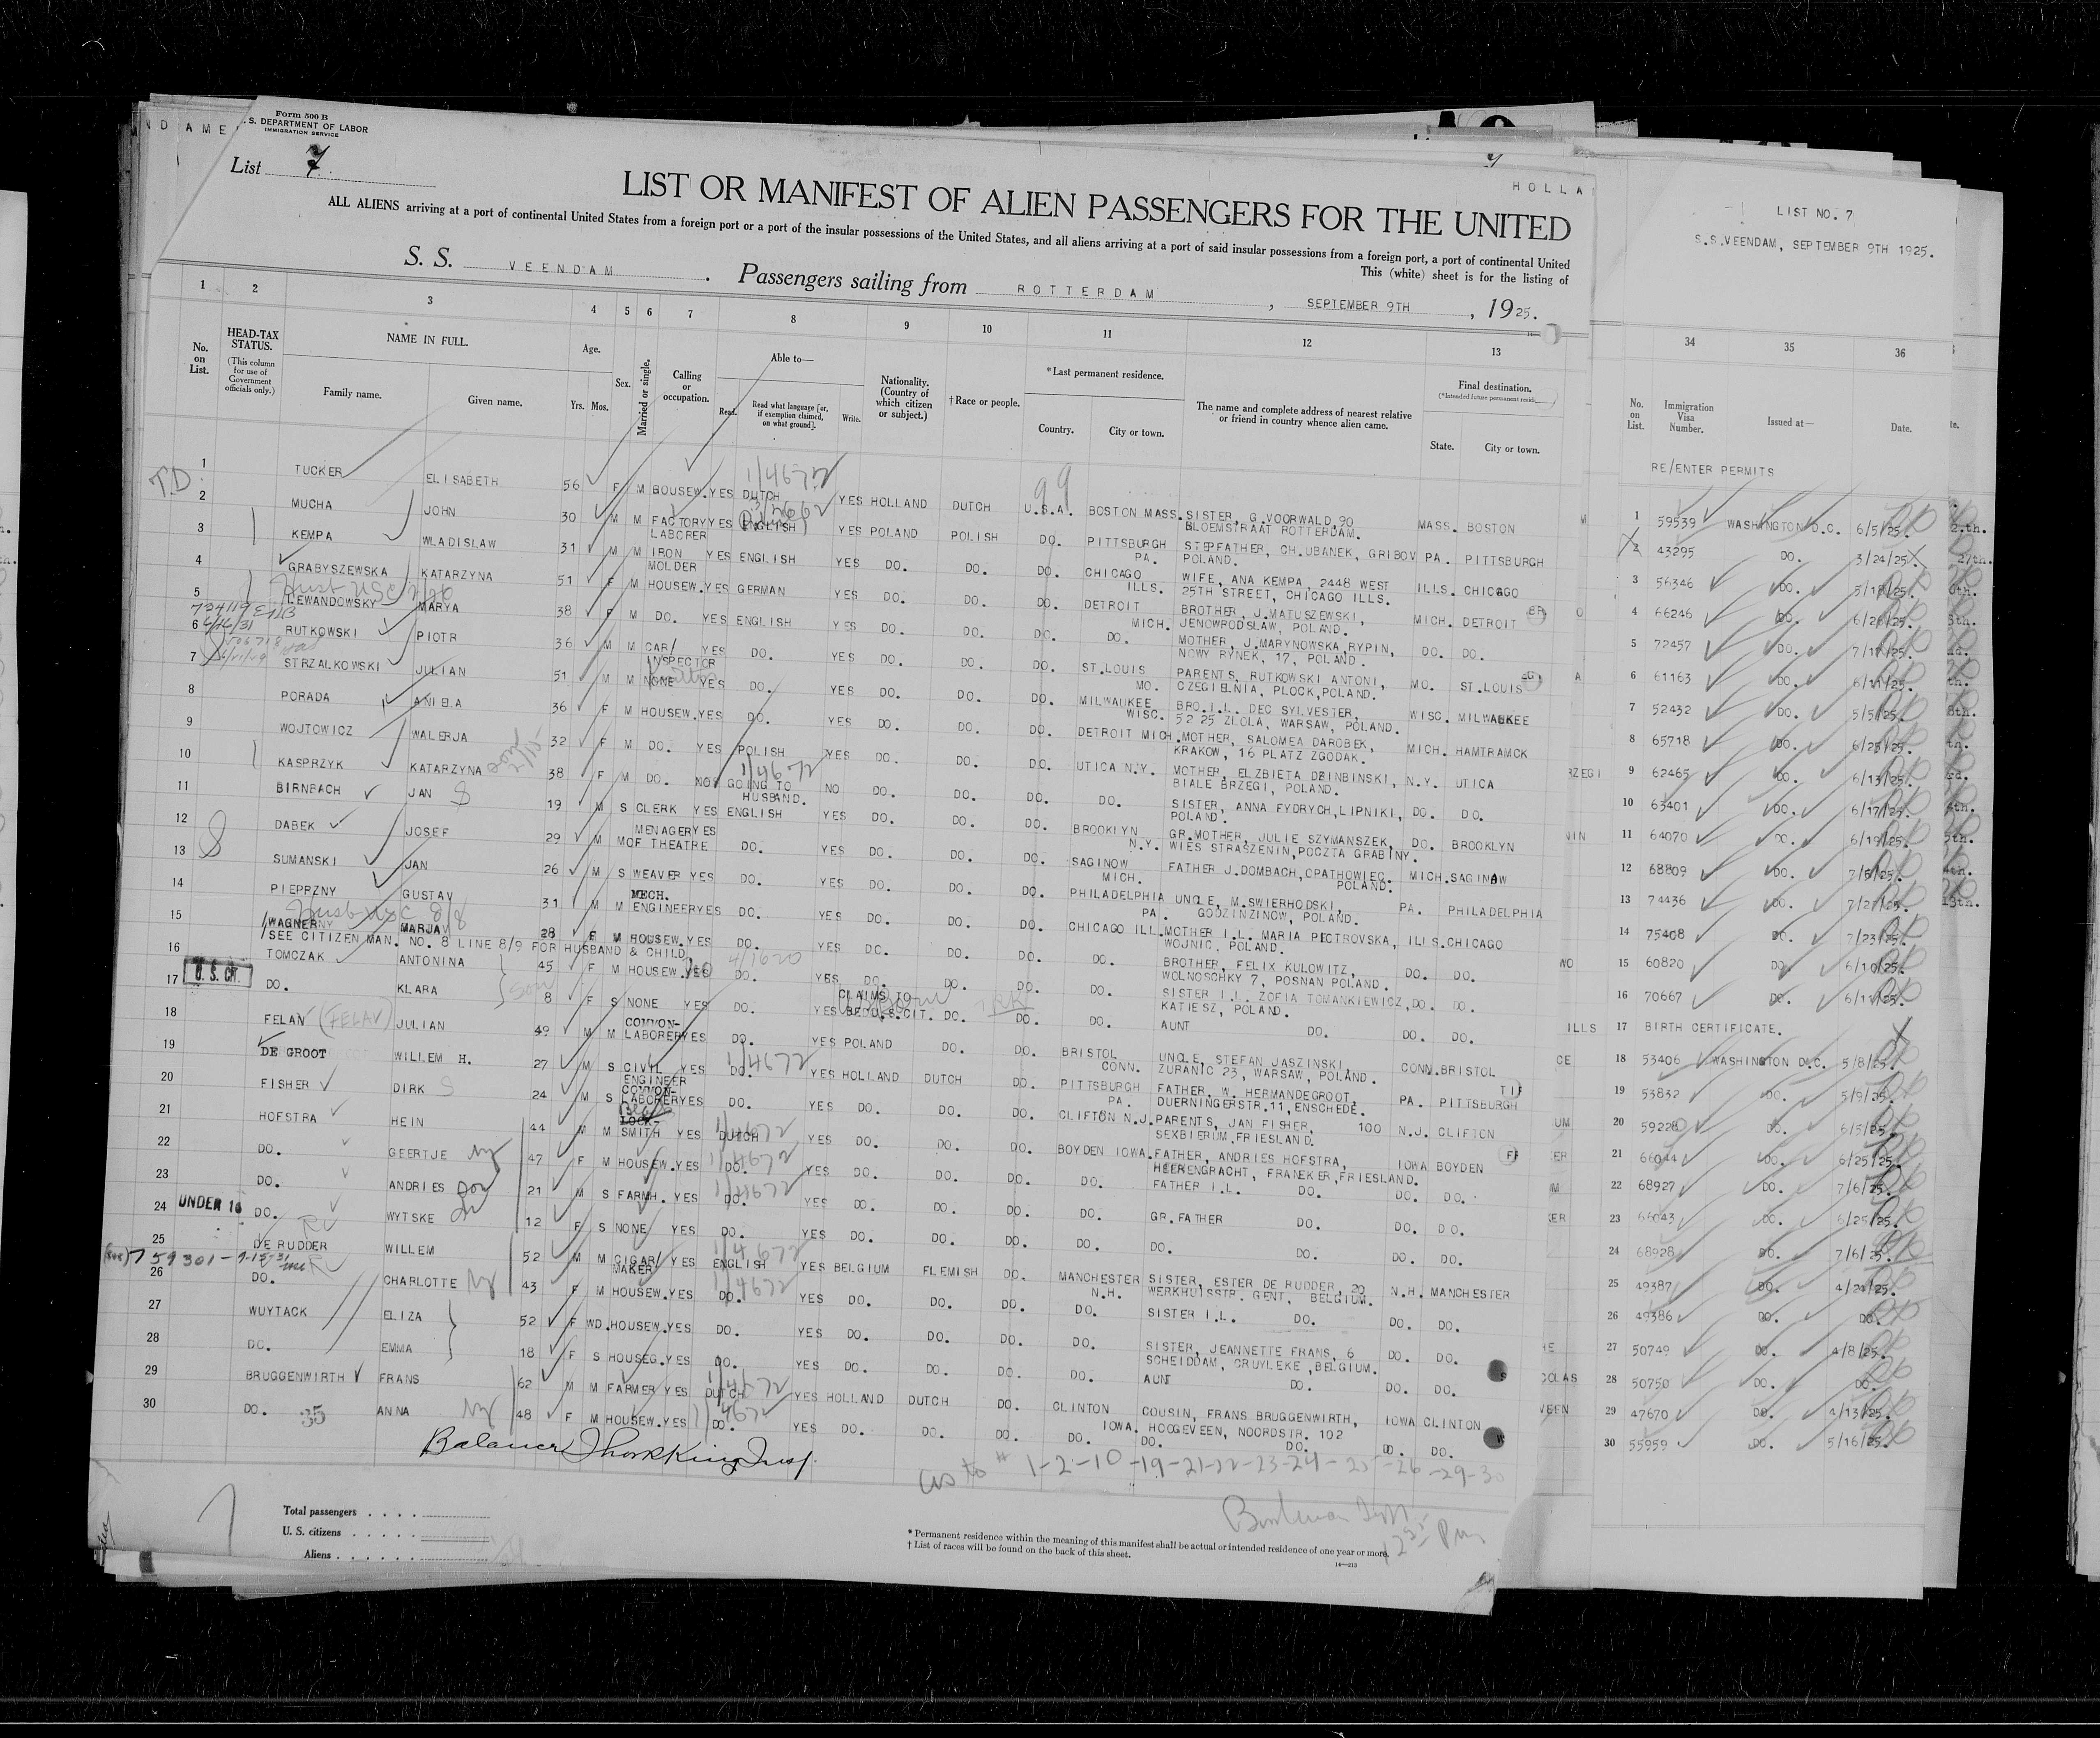 Form 500 B
S. DEPARTMENT OF LABOR
IMMIGRATION SERVICE
List 7
LIST OR MANIFEST OF ALIEN PASSENGERS FOR THE UNITED
ALL ALIENS arriving at a port of continental United States from a foreign port or a port of the insular possessions of the United States, and all aliens arriving at a port of said insular possessions from a foreign port, a port of continental United
This (white) sheet is for the listing of
S. S. VEENDAM. Passengers sailing from ROTTERDAM, SEPTEMBER 9TH, 1925.
1 2 3 4 5 6 7 8 9 10 11 12 13
No. on List. HEAD-TAX STATUS. (This column for use of Government officials only.) NAME IN FULL. Family name. Given name. Age. Yrs. Mos. Sex. Married or single. Calling or occupation. Able to— Read. Read what language [or, if exemption claimed, on what ground]. Write. Nationality. (Country of which citizen or subject.) †Race or people. *Last permanent residence. Country. City or town. The name and complete address of nearest relative or friend in country whence alien came. Final destination. (*Intended future permanent resid State. City or town.
1 TUCKER ELISABETH 56 F M HOUSEW. YES DUTCH YES HOLLAND DUTCH U.S.A. BOSTON MASS. SISTER, G.VOORWALD,90 BLOEMSTRAAT ROTTERDAM. MASS. BOSTON
2 MUCHA JOHN 30 M M FACTORY LABORER YES ENGLISH YES POLAND POLISH DO. PITTSBURGH PA. STEPFATHER, CH.UBANEK, GRIBOV POLAND. PA. PITTSBURGH
3 KEMPA WLADISLAW 31 M M IRON MOLDER YES ENGLISH YES DO. DO. DO. CHICAGO ILLS. WIFE, ANA KEMPA, 2448 WEST 25TH STREET, CHICAGO ILLS. ILLS. CHICAGO
4 GRABYSZEWSKA KATARZYNA 51 F M HOUSEW. YES GERMAN YES DO. DO. DO. DETROIT MICH. BROTHER, J.MATUSZEWSKI, JENOWRODSLAW, POLAND. MICH. DETROIT
5 LEWANDOWSKY MARYA 38 F M DO. YES ENGLISH YES DO. DO. DO. DO. MOTHER, J.MARYNOWSKA,RYPIN, NOWY RYNEK, 17, POLAND. DO. DO.
6 RUTKOWSKI PIOTR 36 M M CAR/ INSPECTOR YES DO. YES DO. DO. DO. ST.LOUIS MO. PARENTS, RUTKOWSKI ANTONI, CZEGIELNIA, PLOCK,POLAND. MO. ST.LOUIS
7 STRZALKOWSKI JULIAN 51 M M NONE YES DO. YES DO. DO. DO. MILWAUKEE WISC. BRO.I.L. DEC SYLVESTER, 52 25 ZLOLA, WARSAW, POLAND. WISC. MILWAUKEE
8 PORADA ANIELA 36 F M HOUSEW. YES DO. YES DO. DO. DO. DETROIT MICH. MOTHER, SALOMEA DAROBEK, KRAKOW, 16 PLATZ ZGODAK. MICH. HAMTRAMCK
9 WOJTOWICZ WALERJA 32 F M DO. YES POLISH YES DO. DO. DO. UTICA N.Y. MOTHER, ELZBIETA DEINBINSKI, BIALE BRZEGI, POLAND. N.Y. UTICA
10 KASPRZYK KATARZYNA 38 F M DO. NO GOING TO HUSBAND. NO DO. DO. DO. DO. SISTER, ANNA FYDRYCH,LIPNIKI, POLAND. DO. DO.
11 BIRNBACH JAN 19 M S CLERK YES ENGLISH YES DO. DO. DO. BROOKLYN N.Y. GR.MOTHER, JULIE SZYMANSZEK, WIES STRASZENIN,POCZTA GRABINY. DO. BROOKLYN
12 DABEK JOSEF 29 M M MENAGER OF THEATRE YES DO. YES DO. DO. DO. SAGINOW MICH. FATHER J.DOMBACH,OPATHOWIEC. POLAND. MICH. SAGINAW
13 SUMANSKI JAN 26 M S WEAVER YES DO. YES DO. DO. DO. PHILADELPHIA PA. UNCLE, M.SWIERHODSKI, GODZINZINOW, POLAND. PA. PHILADELPHIA
14 PIEPRZNY GUSTAV 31 M M MECH. ENGINEER YES DO. YES DO. DO. DO. CHICAGO ILL. MOTHER I.L. MARIA PIOTROVSKA, WOJNIC, POLAND. ILLS. CHICAGO
Husb USC 8/8
15 WAGNERNY MARJA 28 F M HOUSEW. YES DO. YES DO. DO. DO. DO. BROTHER, FELIX KULOWITZ, WOLNOSCHKY 7, POSNAN POLAND. DO. DO.
/SEE CITIZEN MAN. NO. 8 LINE 8/9 FOR HUSBAND & CHILD/
16 TOMCZAK ANTONINA 45 F M HOUSEW. YES DO. YES DO. DO. DO. DO. SISTER I.L. ZOFIA TOMANKIEWICZ, KATIESZ, POLAND. DO. DO.
17 U. S. CIT. DO. KLARA 8 F S NONE YES DO. YES CLAIMS TO BE U.S.CIT. DO. DO. DO. AUNT DO. DO. DO.
18 FELAN (FELAV) JULIAN 49 M M COMMON-LABORER YES DO. YES POLAND DO. DO. BRISTOL CONN. UNCLE, STEFAN JASZINSKI, ZURANIC 23, WARSAW, POLAND. CONN. BRISTOL
19 DE GROOT WILLEM H. 27 M S CIVIL ENGINEER YES DO. YES HOLLAND DUTCH DO. PITTSBURGH PA. FATHER, W. HERMANDEGROOT, DUERNINGERSTR.11, ENSCHEDE. PA. PITTSBURGH
20 FISHER DIRK 24 M S COMMON-LABORER YES DO. YES DO. DO. DO. CLIFTON N.J. PARENTS, JAN FISHER, 100 SEXBIERUM,FRIESLAND. N.J. CLIFTON
21 HOFSTRA HEIN 44 M M LOCK-SMITH YES DUTCH YES DO. DO. DO. BOYDEN IOWA. FATHER, ANDRIES HOFSTRA, HEERENGRACHT, FRANEKER,FRIESLAND. IOWA BOYDEN
22 DO. GEERTJE 47 F M HOUSEW. YES DO. YES DO. DO. DO. DO. FATHER I.L. DO. DO. DO.
23 DO. ANDRIES 21 M S FARMH. YES DO. YES DO. DO. DO. DO. GR.FATHER DO. DO. DO.
24 UNDER 16 DO. WYTSKE 12 F S NONE YES DO. YES DO. DO. DO. DO. DO. DO. DO. DO.
25 DE RUDDER WILLEM 52 M M CIGAR/ MAKER YES ENGLISH YES BELGIUM FLEMISH DO. MANCHESTER N.H. SISTER, ESTER DE RUDDER, 20 WERKHUISSTR. GENT, BELGIUM. N.H. MANCHESTER
26 DO. CHARLOTTE 43 F M HOUSEW. YES DO. YES DO. DO. DO. DO. SISTER I.L. DO. DO. DO.
27 WUYTACK ELIZA 52 F WD. HOUSEW. YES DO. YES DO. DO. DO. DO. SISTER, JEANNETTE FRANS, 6 SCHEIDDAM, CRUYLEKE ,BELGIUM. DO. DO.
28 DO. EMMA 18 F S HOUSEG. YES DO. YES DO. DO. DO. DO. AUNT DO. DO. DO.
29 BRUGGENWIRTH FRANS 62 M M FARMER YES DUTCH YES HOLLAND DUTCH DO. CLINTON IOWA. COUSIN, FRANS BRUGGENWIRTH, HOOGEVEEN, NOORDSTR. 102 IOWA CLINTON
30 DO. ANNA 48 F M HOUSEW. YES DO. YES DO. DO. DO. DO. DO. DO. DO. DO.
35
as to # 1-2-10-19-21-22-23-24-25-26-29-30
Total passengers
U. S. citizens
Aliens
* Permanent residence within the meaning of this manifest shall be actual or intended residence of one year or more.
† List of races will be found on the back of this sheet.
14—213
HOLLA
LIST NO. 7
S.S.VEENDAM, SEPTEMBER 9TH 1925.
34 35 36
No. on List. Immigration Visa Number. Issued at— Date.
RE/ENTER PERMITS
1 59539 WASHINGTON D.C. 6/5/25.
2 43295 DO. 3/24/25.
3 56346 DO. 5/18/25.
4 66246 DO. 6/26/25.
5 72457 DO. 7/17/25.
6 61163 DO. 6/11/25.
7 52432 DO. 5/5/25.
8 65718 DO. 6/25/25.
9 62465 DO. 6/13/25.
10 63401 DO. 6/17/25.
11 64070 DO. 6/19/25.
12 68809 DO. 7/6/25.
13 74436 DO. 7/27/25.
14 75408 DO. 7/23/25.
15 60820 DO. 6/10/25.
16 70667 DO. 6/11/25.
17 BIRTH CERTIFICATE.
18 53406 WASHINGTON D.C. 5/8/25.
19 53832 DO. 5/9/25.
20 59228 DO. 6/5/25.
21 66044 DO. 6/25/25.
22 68927 DO. 7/6/25.
23 66043 DO. 6/25/25.
24 68928 DO. 7/6/25.
25 49387 DO. 4/21/25.
26 49386 DO. DO.
27 50749 DO. 4/8/25.
28 50750 DO. DO.
29 47670 DO. 4/13/25.
30 55959 DO. 5/16/25.